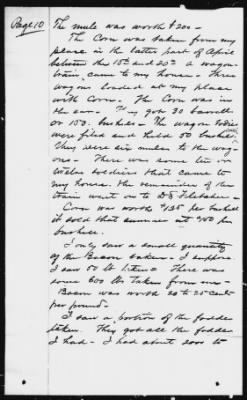 Page 10
The mule was worth $200 -
The Corn was taken from my
place in the latter part of April
between the 15th and 20th a wagon
train came to my house. Three
wagons loaded at my place
with Corn. The Corn was in
the ear. They got 30 barrels
or 150 bushels. The wagon bodies
were filed and held 50 bushels
They were six mules to the wag
ons - There was some ten or
twelve soldiers that came to
my house. The remainder of the
train went on to Fletcher -
Corn was worth per bushel
it sold that summer at per
bushel.
I only saw a small quantity
of the Bacon taken - I suppose
I saw 50 lb There was
some 600 lbs taken from me -
Bacon was worth 20 to 25 cents
per pound -
I saw a portion of the fodder
taken. They got all the fodder
I had - I had about 2000 to